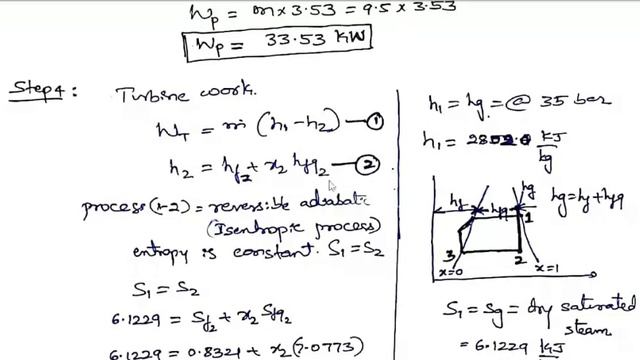 Wp = m x 3.53 = 9.5 x 3.53
Wp = 33.53 KW
Step4 :
Turbine work.
WT = ṁ (h1 - h2) — ①
h2 = hf2 + x2 hfg2 — ②
process (1-2) = reversible adiabatic
(Isentropic process)
entropy is constant. S1 = S2
S1 = S2
6.1229 = Sf2 + x2 Sfg2
6.1229 = 0.8321 + x2 (7.0773)
h1 = hg = @ 35 bar
h1 = KJ/kg
hf
hfg
hg
hg = hf + hfg
1
3
2
x=0
x=1
S1 = Sg = dry saturated
steam
= 6.1229 KJ